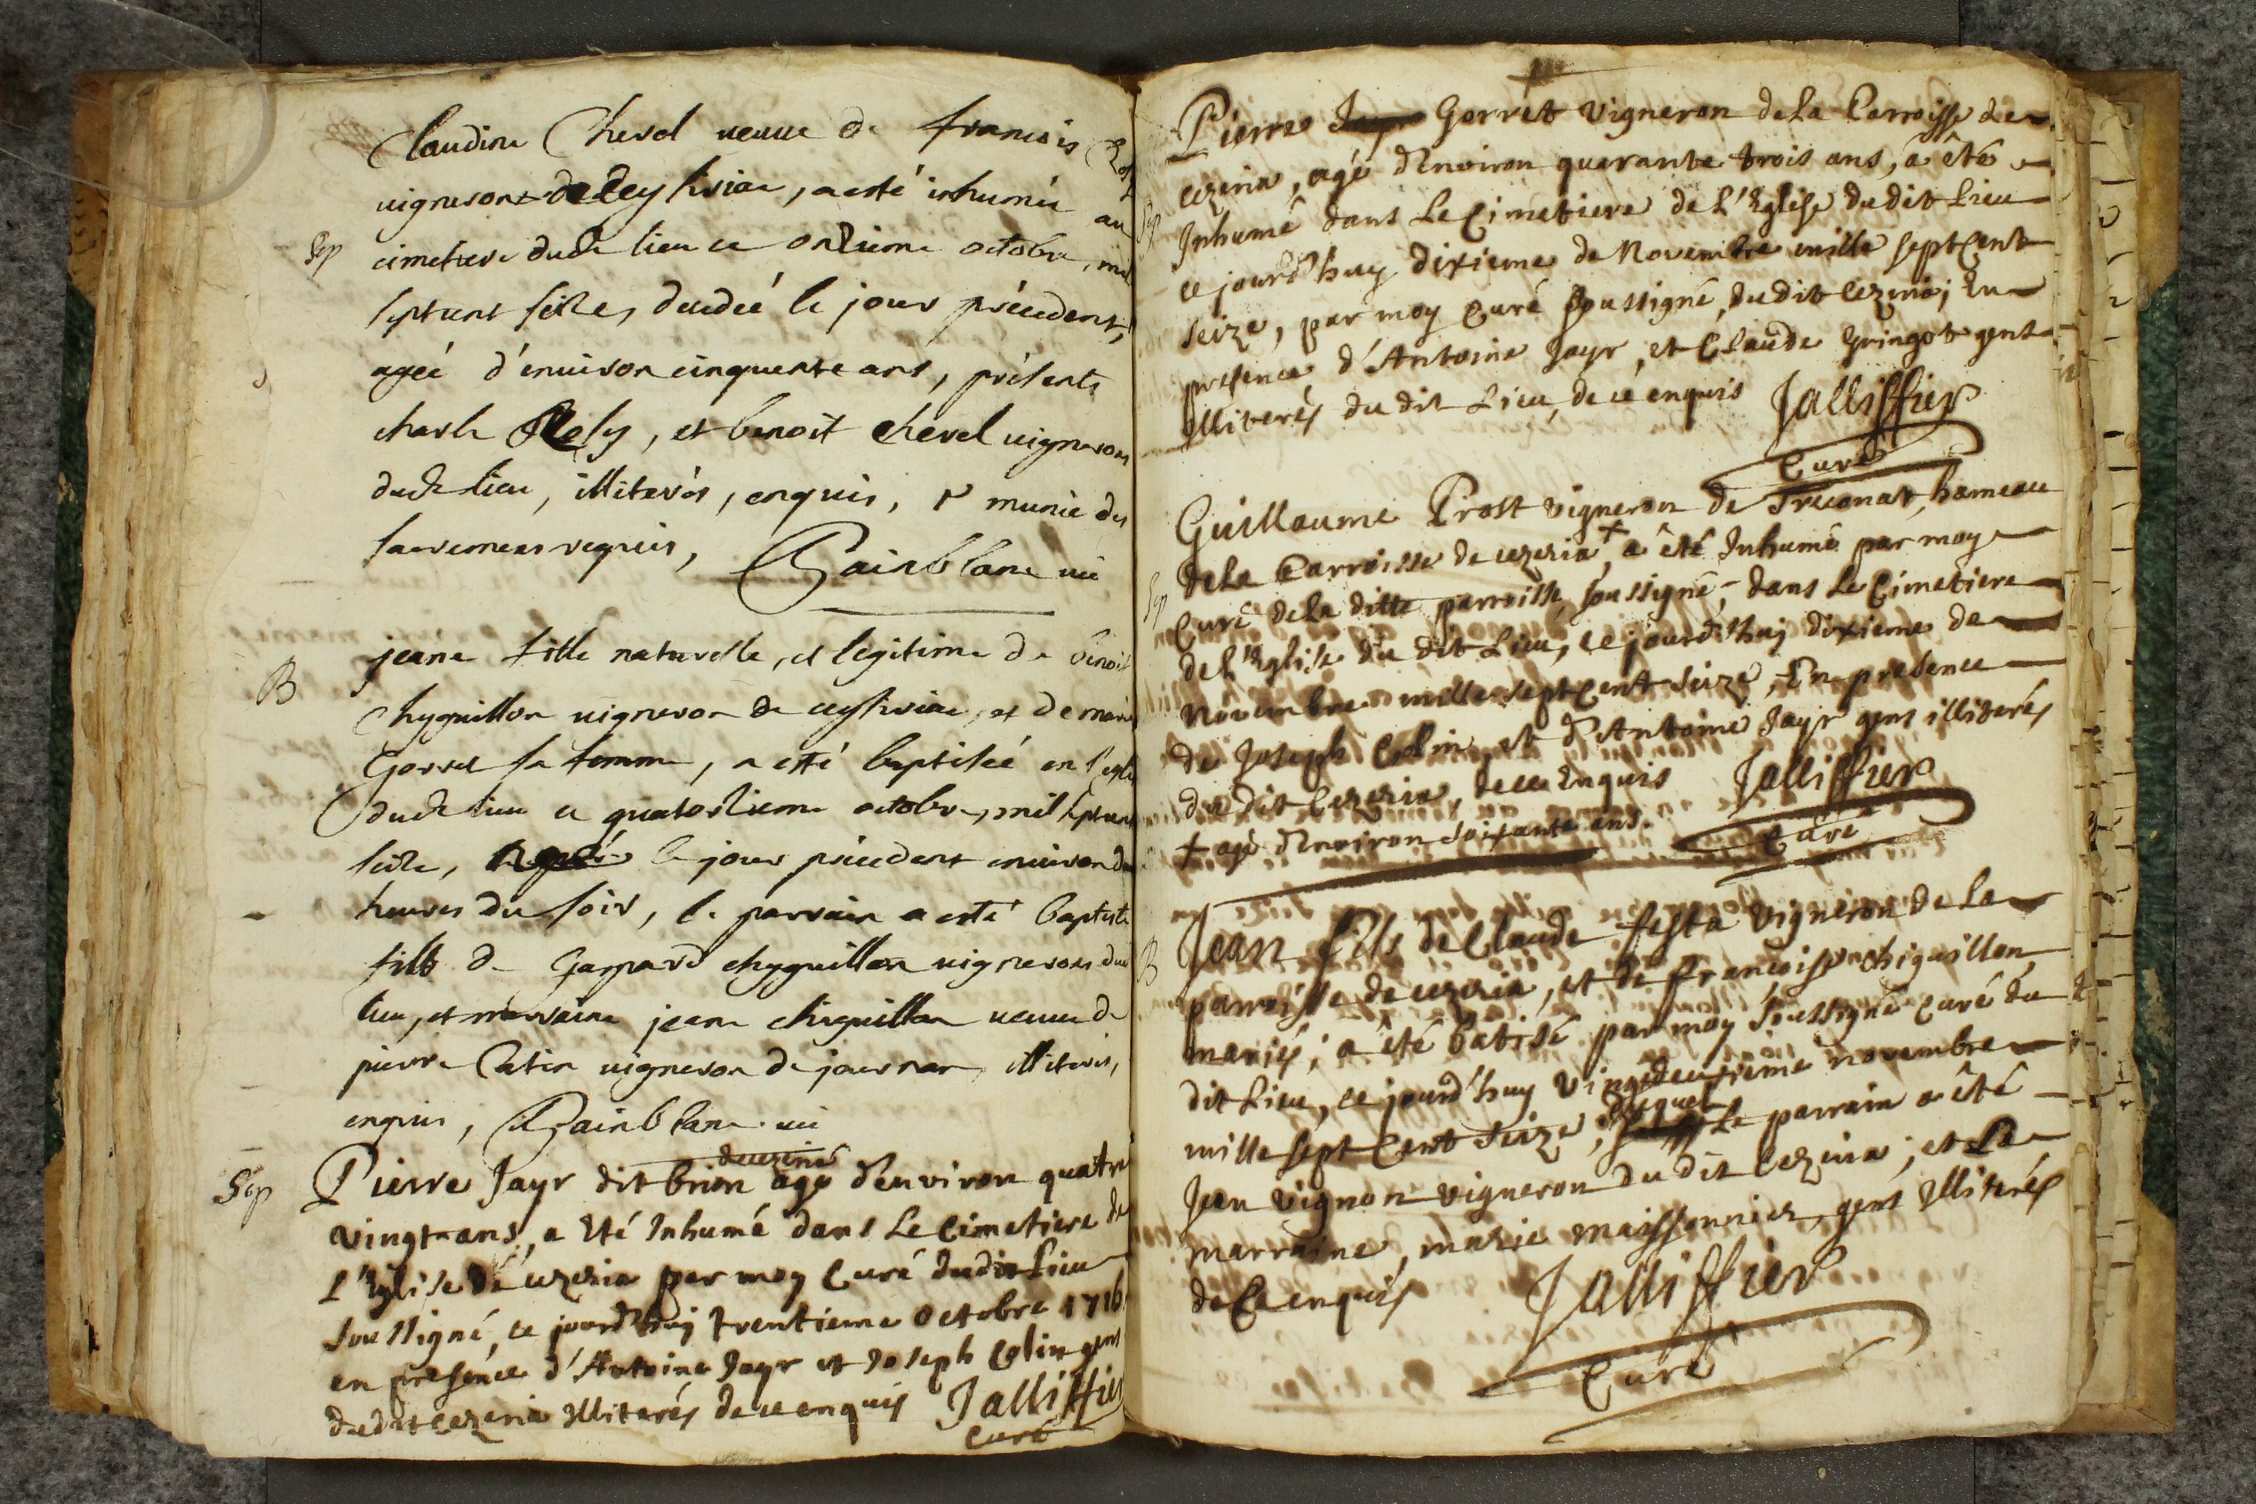 Claudine Chevel veuve de francois
vigneron de Ceyssiria, a esté inhumée au
Sep
cimetiere dudt lieu ce onzieme octobre, mil
septcent seize, decedeé le jour précedent,
ageé d'enuiron cinquente ans, présents
charle Rely, et benoit chevel uignerons
dudt lieu, illiterés, enquis, & munie des
sacremens requis, Painblanc
B
jeane fille naturelle, et légitime de benoit
Chyguillon uigneron de ceyssiria, et de marie
Gorret sa femme, a esté baptiseé en l'eglise
dudt lieu ce quatorzieme octobre, mil septcent
seize, neé le jour précedent enuiron deux
heures du soir, le parrain a esté baptiste
fils de Gaspard chyguillon uigneron dud
lieu, et marraine jeane chiguillon veuue de
pierre Catin uigneron de journan, illiterés,
enquis, Painblanc
Sep
Pierre Jayr dit brion decezeria agé d'environ quatre
vingt ans, a été Inhumé dans Le Cimetiere de
L'Eglise de cezeria par moy Curé dudit Lieu
soussigné, ce jourd'huy trentieme octobre 1716
en presence d'Antoine Jayr et Joseph Colin gens
dudit cezeria Illiterés de ce enquis Jalliffier
Curé
Pierre Gorret vigneron de La Parroisse de
cezeria, agé d'Environ quarante trois ans, a êté
Sep
Inhumé dans Le Cimetiere de L'Eglise du dit Lieu
ce jourd'huy dixieme de Novembre mille sept Cent
seize, par moy Curé soussigné, du dit cezeria; En
presence d'Antoine Jayr, et Claude Gringot gens
Illiterés du dit Lieu, de ce enquis Jalliffier
Curé
Guillaume Prost vigneron de Treconat, hameau
de La Parroisse de cezeria + a êté Inhumé par moy
Sep
Curé de La ditte parroisse, soussigné, dans Le Cimetiere
de L'Eglise du dit Lieu, ce jourd'huy dixieme de
Novembre mille sept Cent seize, En presence
de Joseph Colin, et d'Antoine Jayr gens illiterés
du dit Cezeria, de ce Enquis Jalliffier
+ agé d'Environ soixante ans. Curé
B
Jean fils de Claude festa vigneron de La
parroisse de cezeria, et de francoise chiguillon
mariés; a êté batisé par moy soussigné Curé du
dit Lieu, ce jourd'huy vingtdeuxieme novembre
mille sept Cent seize, duquel Le parrain a êté
Jean vignon vigneron du dit cezeria; et La
marraine, marie maissonnier, gens Illiterés
de Ce enquis Jalliffier
Curé